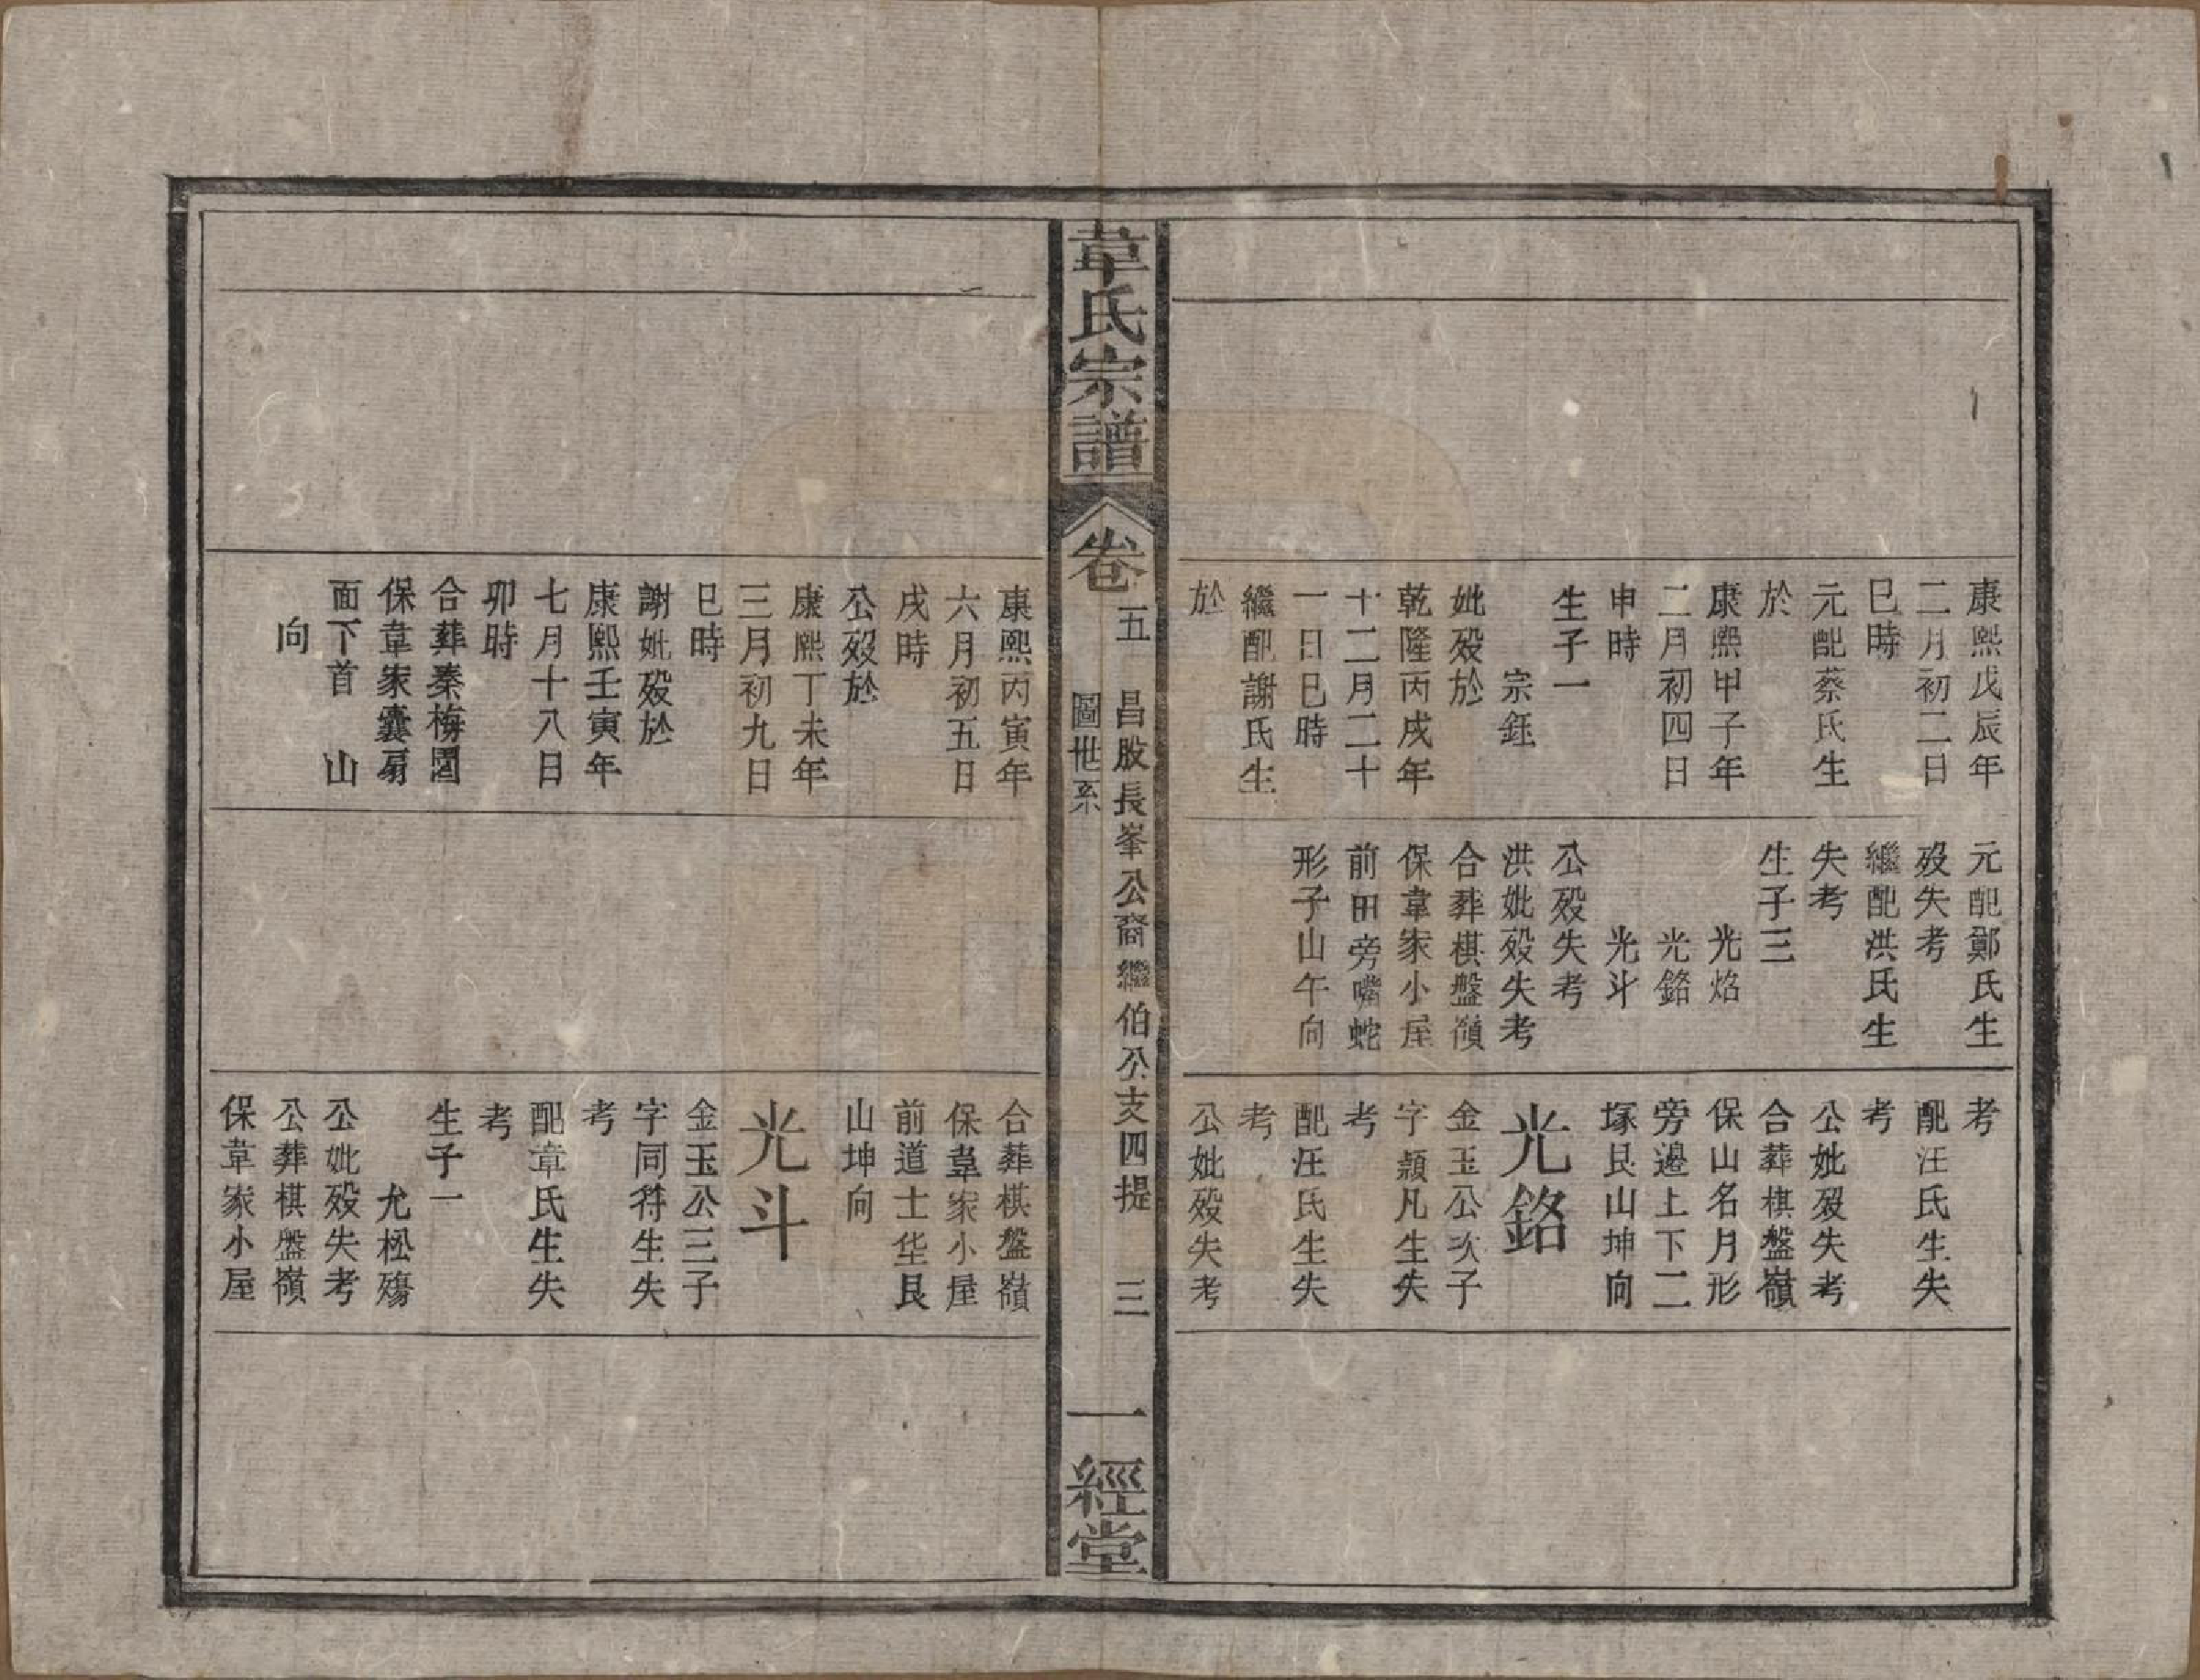 康熙戊辰年
二月初二日
巳時
元配蔡氏生
於
康熙甲子年
二月初四日
申時
生子一
宗鈺
妣殁於
乾隆丙戌年
十二月二十
一日巳時
繼配謝氏生
於
元配鄭氏生
殁失考
繼配洪氏生
失考
生子三
光焰
光銘
光斗
公殁失考
洪妣殁失考
合葬棋盤嶺
保韋家小屋
前田旁嘴蛇
形子山午向
考
配汪氏生失
考
公妣殁失考
合葬棋盤嶺
保山名月形
旁邊上下二
塚艮山坤向
光銘
金玉公次子
字顯凡生失
考
配汪氏生失
考
公妣殁失考
韋氏宗譜
卷五
昌股長峯公裔繼伯公支四提
圖世系
三
一經堂
康熙丙寅年
六月初五日
戌時
公殁於
康熙丁未年
三月初九日
巳時
謝妣殁於
康熙壬寅年
七月十八日
卯時
合葬秦梅閣
保韋家囊扇
面下首 山
向
合葬棋盤嶺
保韋家小屋
前道士华艮
山坤向
光斗
金玉公三子
字同符生失
考
配章氏生失
考
生子一
允松殤
公妣殁失考
公葬棋盤嶺
保韋家小屋